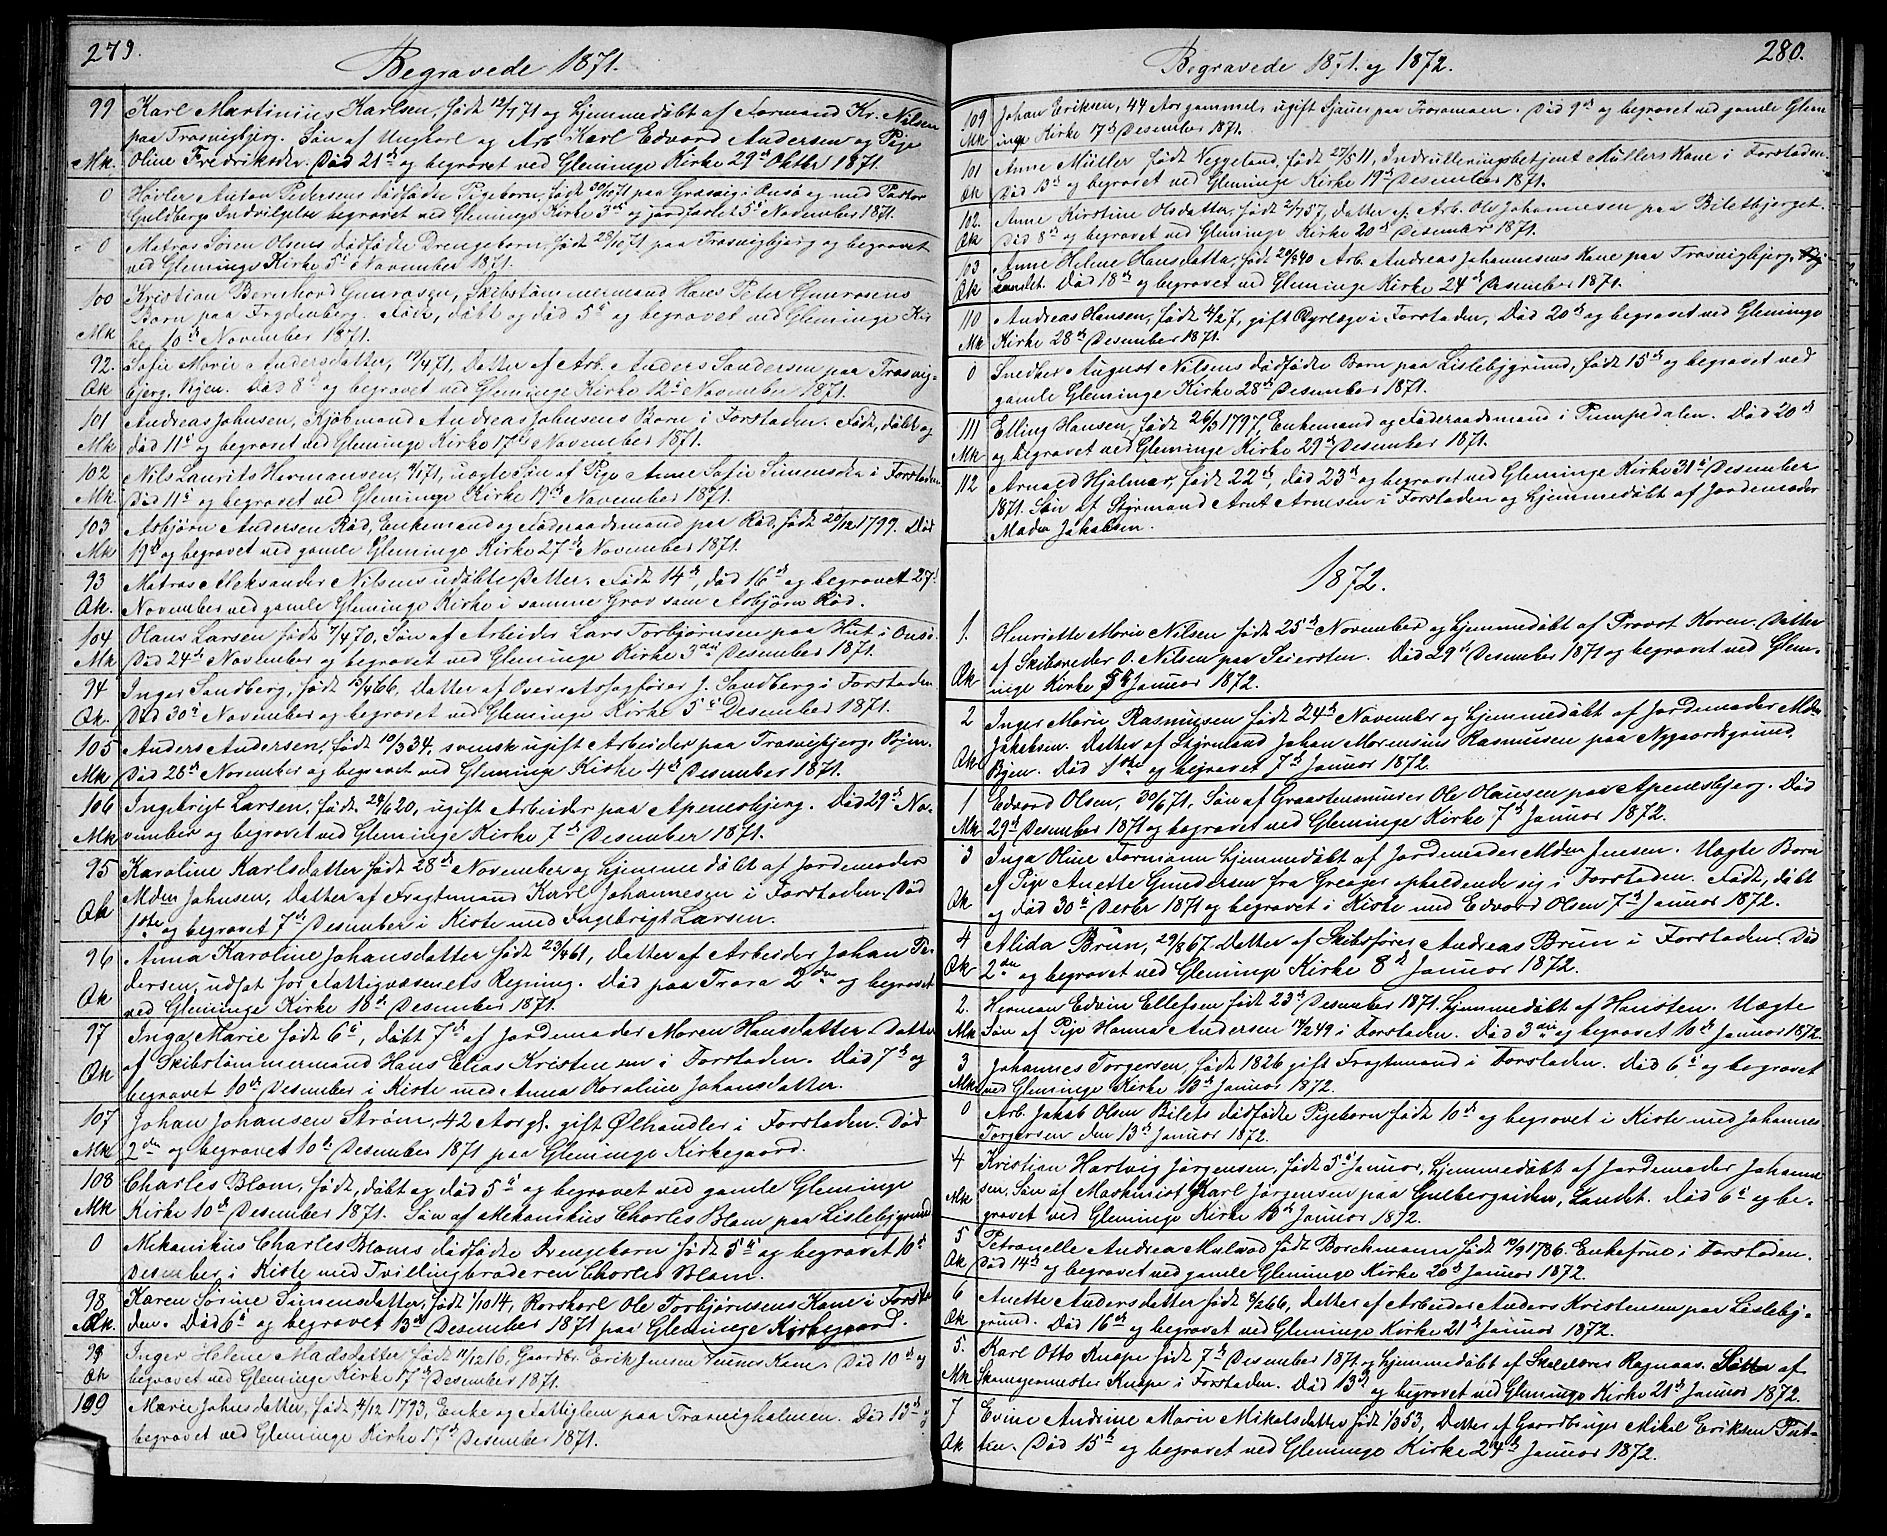 279.
Begravede 1871.
99 Karl Martinius Karlsen, født 12/7 71 og hjemmedøbt af Formand Kr. Nilsen
paa Trosvigbjerg. Søn af Ungkarl og Arb. Karl Edvard Andersen og Pige
Mk. Oline Fredriksdr. Død 21de og begravet ved Gleminge Kirke 29de Oktbr 1871.
0 Anton Pedersens dødfødte Pigebarn, født 30/10 71 paa Græsvig i Onsø og med Pastor
Guldbergs begravet ved Gleminge Kirke 3de og jordfæstet 5te November 1871.
0 Matros Søren Olsens dødfødte Drengebarn, født 28/10 71 paa Trosvigbjerg og begravet
ved Gleminge Kirke 5te November 1871.
100 Kristian Bernhard Gunrosen, Skibstømmermand Hans Peter Gunrosens
Barn paa Frydenberg. Født, døbt og død 5te og begravet ved Gleminge Kir-
Mk ke 10de November 1871.
92. Sofie Marie Andersdatter, 19/4 71, Datter af Arb. Anders Sandersen paa Trosvig-
Qk bjerg, Byen. Død 8de og begravet ved Gleminge Kirke 12te November 1871.
101 Andreas Johnsen, Kjøbmand Andreas Johnsens Barn i Forstaden. Født, døbt og
Mk død 11te og begravet ved Gleminge Kirke 17de November 1871.
102 Nils Laurits Hermansen, 9/1 71, uægte Søn af Pige Anne Sofie Simensdr i Forstaden
Mk. Død 11te og begravet ved Gleminge Kirke 19de November 1871.
103 Asbjørn Andersen Rød, Enkemand og Føderaadsmand paa Rød, født 20/12 1799. Død
Mk 19de og begravet ved gamle Gleminge Kirke 27de November 1871.
93 Matros Aleksander Nilsens udøbte Datter. Født 14de, død 16de og begravet 27de
Qk. November ved gamle Gleminge Kirke i samme Grav som Asbjørn Rød.
104 Olaus Larsen født 7/4 70, Søn af Arbeider Lars Torbjørnsen paa Hut i Onsø.
Mk Død 24de November og begravet ved Gleminge Kirke 3die Desember 1871.
94 Inger Sandberg, født 15/4 66, Datter af Oversagfører J. Sandberg i Forstaden
Qk. Død 30te November og begravet ved Gleminge Kirke 5te Desember 1871.
105 Anders Andersen, født 10/3 34, svensk ugift Arbeider paa Trosvigbjerg, Byen.
Mk Død 28de November og begravet ved Gleminge Kirke 4de Desember 1871.
106 Ingebrigt Larsen, født 24/6 20, ugift Arbeider paa Apenesbjerg. Død 29de No-
Mk vember og begravet ved Gleminge Kirke 7de Desember 1871.
95 Karoline Karlsdatter født 28de November og hjemmedøbt af Jordemoder
Mdm Johnsen, Datter af Fragtmand Karl Johannesen i Forstaden. Død
Qk 1ste og begravet 7de Desember i Kiste med Ingebrigt Larsen.
96 Anna Karoline Johansdatter født 23/4 61, Datter af Arbeider Johan Pe-
dersen, udsat for Fattigvæsenets Regning. Død paa Trara 2den og begravet
Qk ved Gleminge Kirke 10de Desember 1871.
97 Inga Marie født 6te, døbt 7de af Jordemoder Maren Hansdatter. Datter
af Skibstømmermand Hans Elias Kristensen i Forstaden. Død 7de og
Qk begravet 10de Desember i Kiste med Anna Karoline Johansdatter.
107 Johan Johansen Strøm, 42 Aar gl. gift Ølhandler i Forstaden. Død
Mk 2den og begravet 10de Desember 1871 paa Gleminge Kirkegaard.
108 Charles Blom, født, døbt og død 5te og begravet ved gamle Gleminge
Mk Kirke 10de Desember 1871. Søn af Mekanikus Charles Blom paa Lislebygrund
0 Mekanikus Charles Bloms dødfødte Drengebarn født 5te og begravet 10de
Desember i Kiste med Tvillingbroderen Charles Blom.
98. Karen Sørine Simensdatter, født 1/10 14, Rorskarl Ole Torbjørnsens Kone i Forsta
Qk. den. Død 6te og begravet 13de Desember 1871 paa Gleminge Kirkegaard.
99 Inger Helene Madsdatter født 11/12 16, Gaardbr. Erik Jensen Kone. Død 10de og
Qk begravet ved Gleminge Kirke 17de Desember 1871.
100 Marie Johnsdatter, født 4/12 1793, Enke og Fattiglem paa Trosvigholmen. Død 13de og
begravet ved Gleminge Kirke 17de Desember 1871.
280.
Begravede 1871. og 1872.
109 Johan Eriksen, 44 Aar gammel, ugift Sjauer paa Traramoen. Død 9de og begravet ved gamle Glem-
Mk inge Kirke 17de Desember 1871.
101 Anne Müller født Neggeland, født 27/5 11, Indrulleringsbetjent Müllers Kone i Forstaden.
Qk Død 13de og begravet ved Gleminge Kirke 19de Desember 1871.
102. Anne Kirstine Olsdatter, født 2/7 57, Datter af Arb. Ole Johannesen paa Biletbjerget.
Qk Død 8de og begravet ved Gleminge Kirke 20de Desember 1871.
103 Anne Helene Hansdatter, født 20/8 40 Arb. Andreas Johannesens Kone paa Trosvigbjerg,
Qk Landet. Død 18de og begravet ved Gleminge Kirke 24de Desember 1871.
110 Andreas Hansen, født 4/2 7, gift Byrlægs i Forstaden, Død 20de og begravet ved Gleminge
Mk Kirke 28de Desember 1871.
0 Snedker August Nilsens dødfødte Barn paa Lislebygrund, født 15de og begravet ved
gamle Gleminge Kirke 28de Desember 1871.
111 Elling Hansen, født 26/3 1797, Enkemand og Føderaadsmand i Pumpedalen. Død 20de
Mk og begravet ved Gleminge Kirke 29de Desember 1871.
112 Arnold Hjalmar, født 22de, død 23de og begravet ved Gleminge Kirke 31te Desember
1871. Søn af Styrmand Arnt Arnesen i Forstaden og hjemmedøbt af Jordemoder
Madm Jakobsen.
1872.
1. Henriette Marie Nilsen født 25de November og hjemmedøbt af Provst Koren. Datter
af Skibsreder O. Nilsen paa Seiersten. Død 29de Desember 1871 og begravet ved Glem-
Qk inge Kirke 5te Januar 1872.
2 Inger Marie Rasmusen født 24de November og hjemmedøbt af Jordemoder Mdm
Jakobsen. Datter af Styrmand Johan Morensius Rasmusen paa Nygaardsgrund,
Qk Byen. Død 1ste og begravet 7de Januar 1872.
1 Edvard Olsen, 30/6 71, Søn af Graastensmurer Ole Olausen paa Apenesbjerg. Død
Mk 29de Desember 1871 og begravet ved Gleminge Kirke 7de Januar 1872.
3 Inga Oline Formann hjemmedøbt af Jordemoder Mdm Jensen. Uægte Barn
af Pige Anette Gundersen fra Greåger opholdende sig i Forstaden. Født, døbt
Qk og død 30te Desbr 1871 og begravet i Kiste med Edvard Olsen 7de Januar 1872.
4 Alida Brun, 29/8 67. Datter af Skibsfører Andreas Brun i Forstaden. Død
Qk 2den og begravet ved Gleminge Kirke 8de Januar 1872.
2. Herman Edvin Ellefsen født 23de Desember 1871. hjemmedøbt af Hansten. Uægte
Mk Søn af Pige Hanna Andersen 14/2 49 i Forstaden. Død 3die og begravet 10de Januar 1872.
3 Johannes Torgersen, født 1826 gift Fragtmand i Forstaden. Død 6te og begravet
Mk ved Gleminge Kirke 13de Januar 1872.
0 Arb. Jakob Olsen Bilets dødfødte Pigebarn født 10de og begravet i Kiste med Johannes
Torgersen den 13de Januar 1872.
4 Kristian Hartvig Jørgensen, født 5te Januar, hjemmedøbt af Jordemoder Johanne-
sen, Søn af Maskinist Karl Jørgensen paa Gulbergsiden, Landet. Død 6te og be-
Mk gravet ved Gleminge Kirke 13de Januar 1872.
5 Petronelle Andrea Mulvad født Borchmann født 10/9 1786. Enkefrue i Forstaden.
Qk Død 14de og begravet ved gamle Gleminge Kirke 20de Januar 1872.
6 Anette Andersdatter født 8/2 66, Datter af Arbeider Anders Kristensen paa Lisleby-
Qk grund. Død 16de og begravet ved Gleminge Kirke 21de Januar 1872.
5. Karl Otto Knape født 7de Desember 1871 og hjemmedøbt af Skolelærer Ragnaas. Søn af
Mk Skomagermester Knape i Forstaden. Død 13de og begravet ved Gleminge Kirke 21de Januar 1872.
7 Evine Andrine Marie Mikalsdatter født 1/3 53, Datter af Gaardbruger Mikal Eriksen Put-
Qk ten. Død 15de og begravet ved Gleminge Kirke 24de Januar 1872.